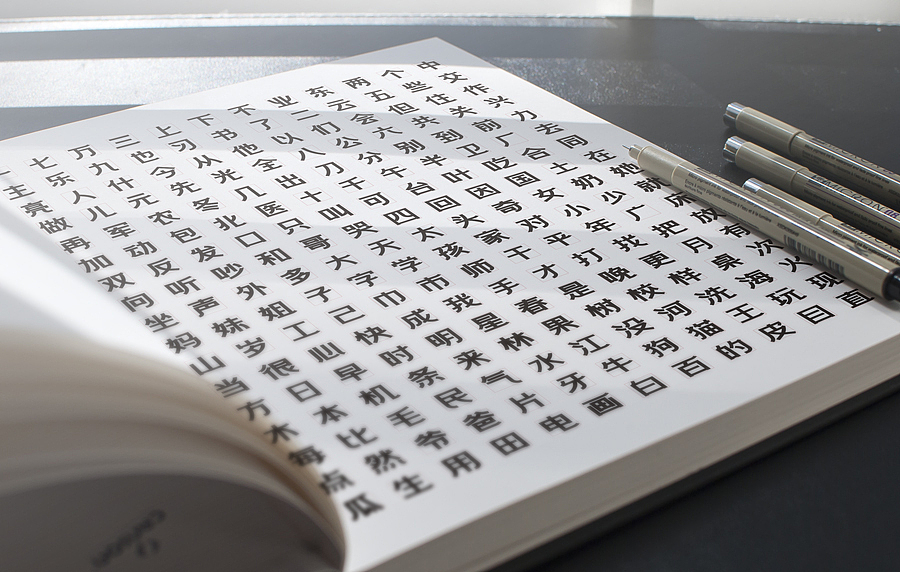 一七万三上下不业东两个中
主乐九也习书了二云五些交
亮人什今从他以们会但住作
做儿元先光全八公六共关兴
再军农冬几出刀分别到前力
加动包北医十千午半卫厂去
双反发口只叫可台叶吃合同
向听吵和哥哭四回因国土在
坐声外多大天太头奇女奶她
妈妹姐子字学孩家对小少就
山岁工己巾市师干平年广床
当很心快成我手才打找把放
方日早时明星春是晚更月有
木本机条来林果树校样桌次
每比毛民气水江没河洗海火
点然爷爸片牙牛狗猫王玩班
瓜生用田电画白百的皮目直